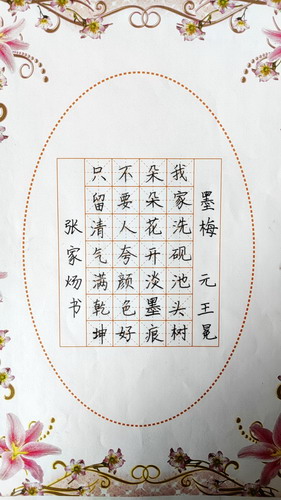 墨梅 元 王冕
我家洗砚池头树
朵朵花开淡墨痕
不要人夸颜色好
只留清气满乾坤
张家炀书